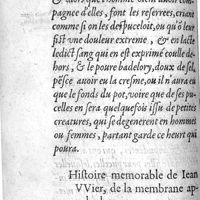 pagnee d'elles, font les reserrees, criant
comme si on les depuceloit, ou qu'ō leur
fist vne douleur extreme, & on lasche
ledict sang qui en est exprimé coulle de-
hors, & le poure badelory, doux de sel,
pēsce auoir eu la cresme, ou il n'aura eu
que le fonds du pot, voire que de ses pu-
celles en sera quelquefois issu de petites
creatures, qui ja degenerent en hommes
ou femmes, partant garde ce heurt qui
poura.
Histoire memorable de Iean
VVier, de la membrane ap-